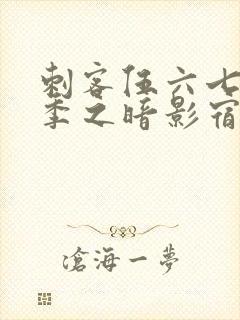 刺客伍六七
季之暗影宿
滄海一夢